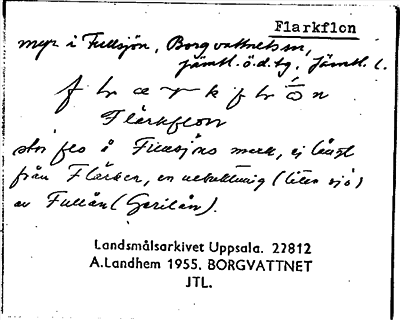 Flarkflon
myr i Fullsjön, Borgvattnets sn,
jämtl. ö.d. tg, Jämtl. l.
Flärkflon
stor flo å Fullsjöns mark, ej långt
från Flärken, en utbuktning (liten sjö)
av Fullån (Gerilån).
Landsmålsarkivet Uppsala. 22812
A.Landhem 1955. BORGVATTNET
JTL.